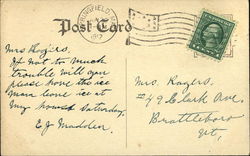 Post Card
1917
Mrs Rogers,
If not to much
trouble will you
please have the ice
man leave ice at
my house Saturday.
E J Madden
Mrs. Rogers.
#49 Clark Ave,
Brattleboro
Vt,